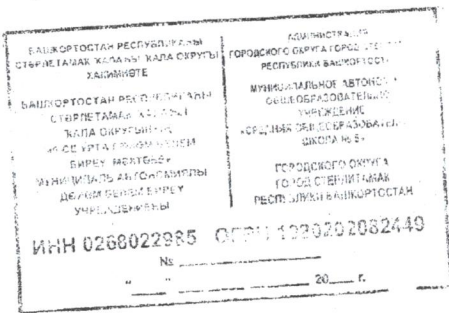 БАШКОРТОСТАН РЕСПУБЛИКАҺЫ
СТӘРЛЕТАМАҠ ҠАЛАҺЫ ҠАЛА ОКРУГЫ
ХАКИМИӘТЕ
БАШКОРТОСТАН РЕСПУБЛИКАҺЫ
СТӘРЛЕТАМАҠ ҠАЛАҺЫ
ҠАЛА ОКРУГЫНЫҢ
УРТА БЕЛЕМ
БИРЕҮ МӘКТӘБЕ
МУНИЦИПАЛЬ АВТОНОМИЯЛЫ
ДӨЙӨМ БЕЛЕМ БИРЕҮ
УЧРЕЖДЕНИЕҺЫ
АДМИНИСТРАЦИЯ
ГОРОДСКОГО ОКРУГА ГОРОД
РЕСПУБЛИКИ БАШКОРТОСТ
МУНИЦИПАЛЬНОЕ АВТОНОМ
ОБЩЕОБРАЗОВАТЕЛЬНОЕ
УЧРЕЖДЕНИЕ
«СРЕДНЯЯ ОБЩЕОБРАЗОВАТЕЛ
ШКОЛА №
ГОРОДСКОГО ОКРУГА
ГОРОД СТЕРЛИТАМАК
РЕСПУБЛИКИ БАШКОРТОСТАН
ИНН 0268022985 ОГРН 1020202082449
№
" " 20 г.